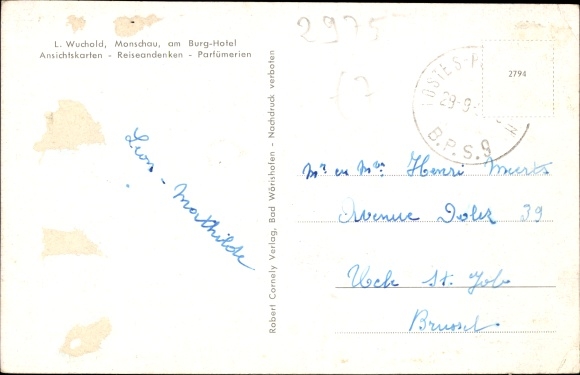 L. Wuchold, Monschau, am Burg-Hotel
Ansichtskarten - Reiseandenken - Parfümerien
Leon - Mathilde
Robert Cornely Verlag, Bad Wörishofen - Nachdruck verboten
2975
2794
POSTES-P
29-9
B.P.S.9
Mr en Mme Henri Meerts
Avenue Dolez 39
Uck St. Job
Brussel.